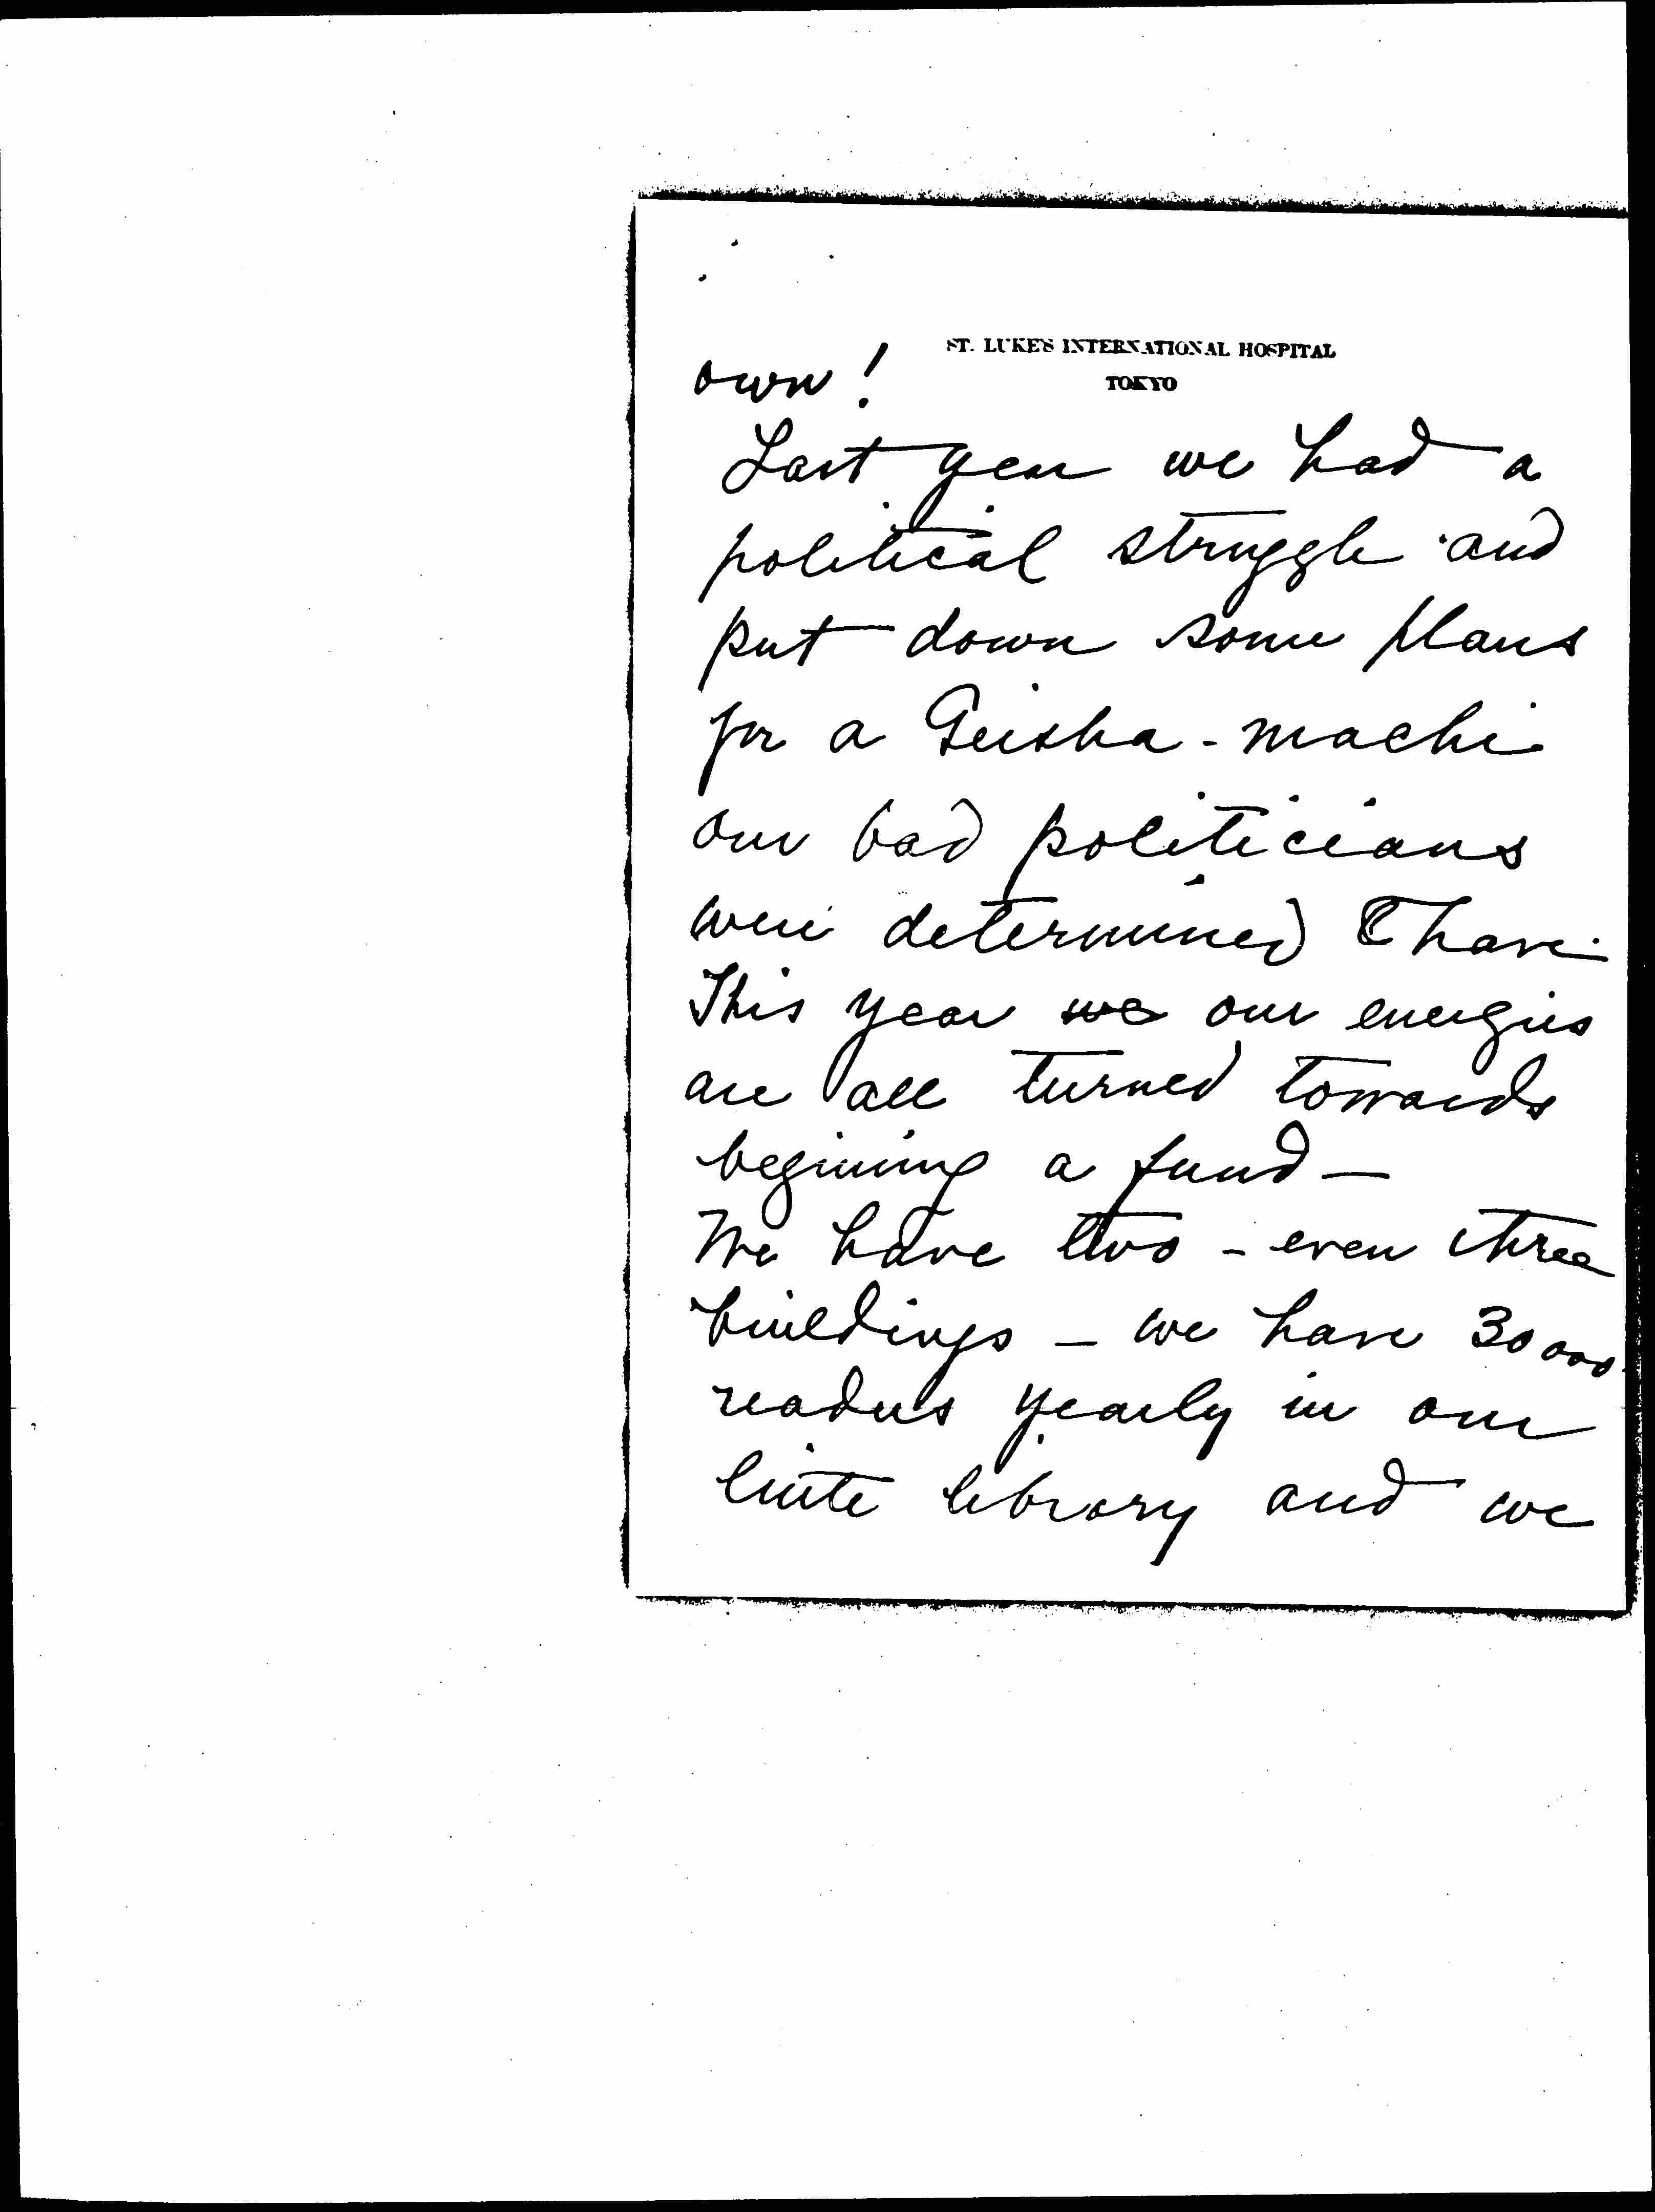 ST. LUKE'S INTERNATIONAL HOSPITAL
TOKYO
own!
Last year we had a
political struggle and
put down some plans
for a Geisha-machi
our bad politicians
were determined to have.
This year we our energies
are all turned towards
begining a fund —
We have two - even three
buildings — we have 30000
readers yearly in our
little library and we